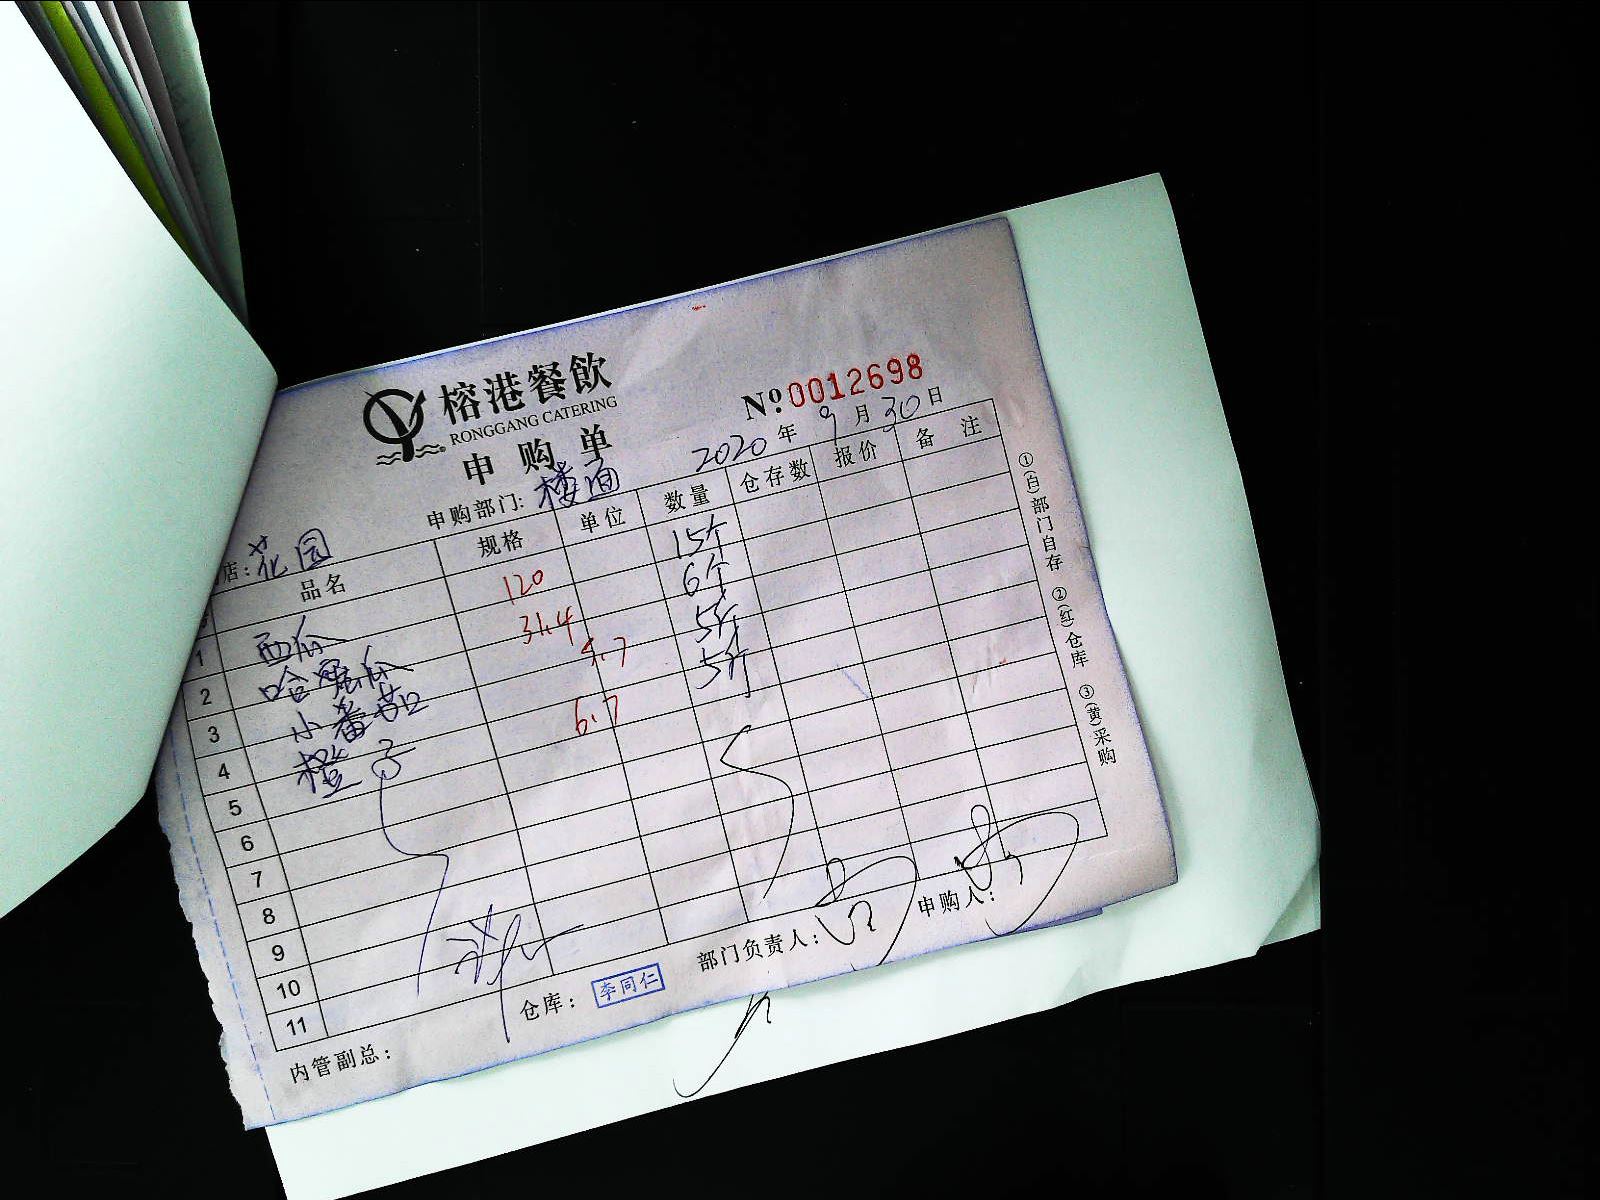 榕港餐飲
RONGGANG CATERING
申购单
№0012698
2020年9月30日
店:花园
申购部门:楼面
品名 规格 单位 数量 仓存数 报价 备注
1 西瓜 120 15个
2 哈蜜瓜 31.4 6个
3 小番茄 5.7 5斤
4 橙子 6.7 5斤
5
6
7
8
9
10
11
内管副总:
仓库: 李同仁
部门负责人:
申购人:
①(白)部门自存 ②(红)仓库 ③(黄)采购